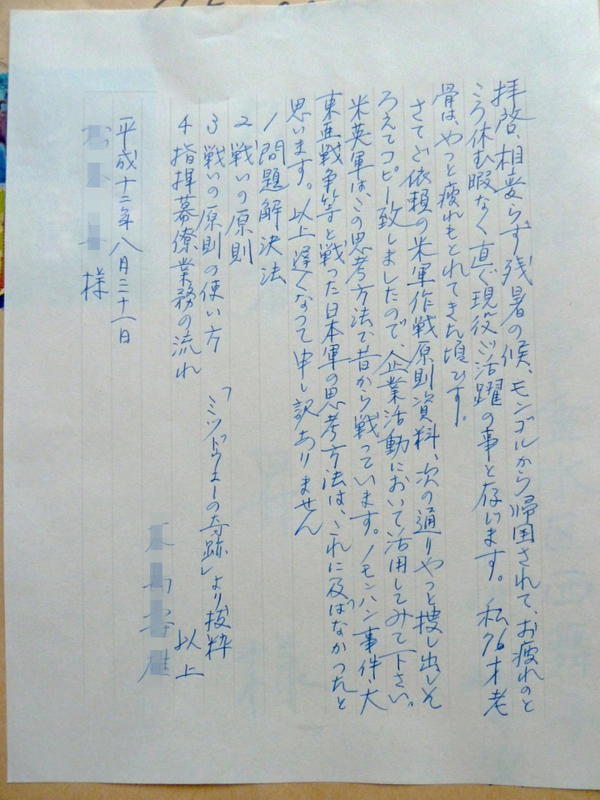 拝啓、相変らず残暑の候、モンゴルから帰国されて、お疲れのと
ころ休む暇なく直ぐ現役ご活躍の事と存じます。私76才老
骨はやっと疲れもとれてきた頃です。
さてご依頼の米軍作戦原則資料、次の通りやっと捜し出しそ
ろえてコピー致しましたので、企業活動において活用してみて下さい。
米英軍は、この思考方法で昔から戦っています。ノモンハン事件、大
東亜戦争等と戦った日本軍の思考方法は、これに及ばなかったと
思います。以上遅くなって申し訳ありません
1 問題解決法
2 戦いの原則
3 戦いの原則の使い方
4 指揮幕僚業務の流れ
「ミッドウェーの奇跡」より抜粋
以上
平成十二年八月三十一日
様